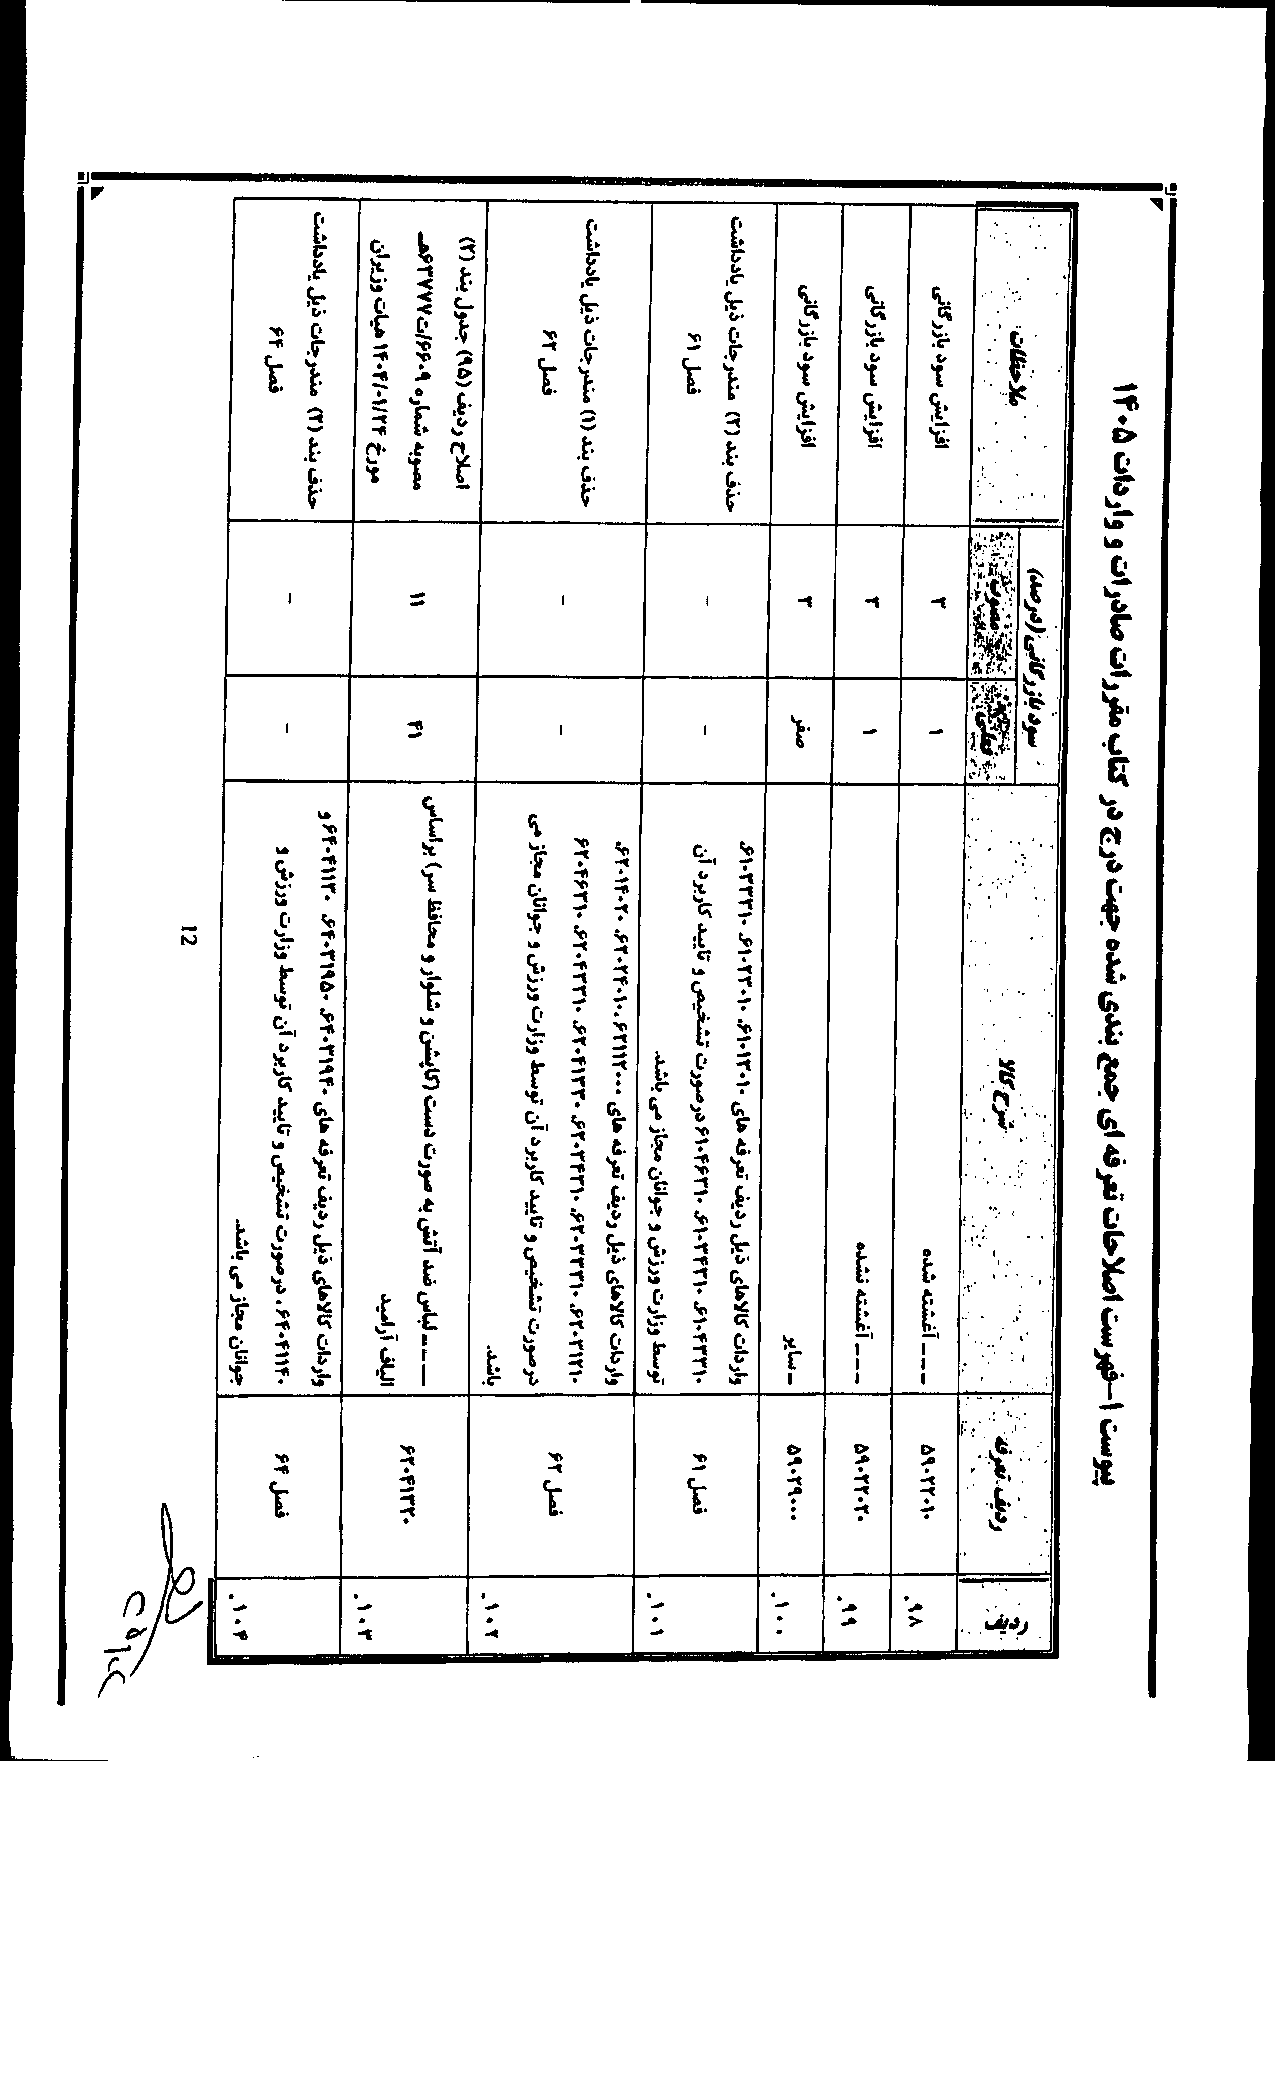 پیوست ۱-فهرست اصلاحات تعرفه ای جمع بندی شده جهت درج در کتاب مقررات صادرات و واردات ۱۴۰۵
ردیف
ردیف تعرفه
شرح کالا
سود بازرگانی (درصد)
فعلی
مصوب
ملاحظات
۹۸.
۵۹۰۲۲۰۱۰
---آغشته شده
۱
۳
افزایش سود بازرگانی
۹۹.
۵۹۰۲۲۰۲۰
---آغشته نشده
۱
۳
افزایش سود بازرگانی
۱۰۰.
۵۹۰۲۹۰۰۰
-سایر
صفر
۳
افزایش سود بازرگانی
۱۰۱.
فصل ۶۱
واردات کالاهای ذیل ردیف تعرفه های ۶۱۰۱۳۰۱۰، ۶۱۰۲۳۰۱۰، ۶۱۰۳۳۳۱۰،
۶۱۰۴۳۳۱۰، ۶۱۰۳۴۳۱۰، ۶۱۰۴۶۳۱۰ درصورت تشخیص و تایید کاربرد آن
توسط وزارت ورزش و جوانان مجاز می باشد.
-
-
حذف بند (۲) مندرجات ذیل یادداشت
فصل ۶۱
۱۰۲.
فصل ۶۲
واردات کالاهای ذیل ردیف تعرفه های ۶۲۱۱۲۰۰۰، ۶۲۰۲۴۰۱۰، ۶۲۰۱۴۰۲۰،
۶۲۰۳۱۲۱۰، ۶۲۰۳۳۳۱۰، ۶۲۰۳۴۳۱۰، ۶۲۰۴۱۳۳۰، ۶۲۰۴۳۳۱۰، ۶۲۰۴۶۳۱۰
درصورت تشخیص و تایید کاربرد آن توسط وزارت ورزش و جوانان مجاز می
باشد.
-
-
حذف بند (۱) مندرجات ذیل یادداشت
فصل ۶۲
۱۰۳.
۶۲۰۴۱۳۲۰
----لباس ضد آتش به صورت دست (کاپشن و شلوار و محافظ سر) براساس
الیاف آرامید
۴۱
۱۱
اصلاح ردیف (۹۵) جدول بند (۲)
مصوبه شماره ۶۶۰۹/ت۶۳۷۷۷هـ
مورخ ۱۴۰۴/۰۱/۲۴ هیات وزیران
۱۰۴.
فصل ۶۴
واردات کالاهای ذیل ردیف تعرفه های ۶۴۰۳۱۹۴۰، ۶۴۰۳۱۹۵۰، ۶۴۰۴۱۱۳۰ و
۶۴۰۴۱۱۴۰، درصورت تشخیص و تایید کاربرد آن توسط وزارت ورزش و
جوانان مجاز می باشد.
-
-
حذف بند (۲) مندرجات ذیل یادداشت
فصل ۶۴
12